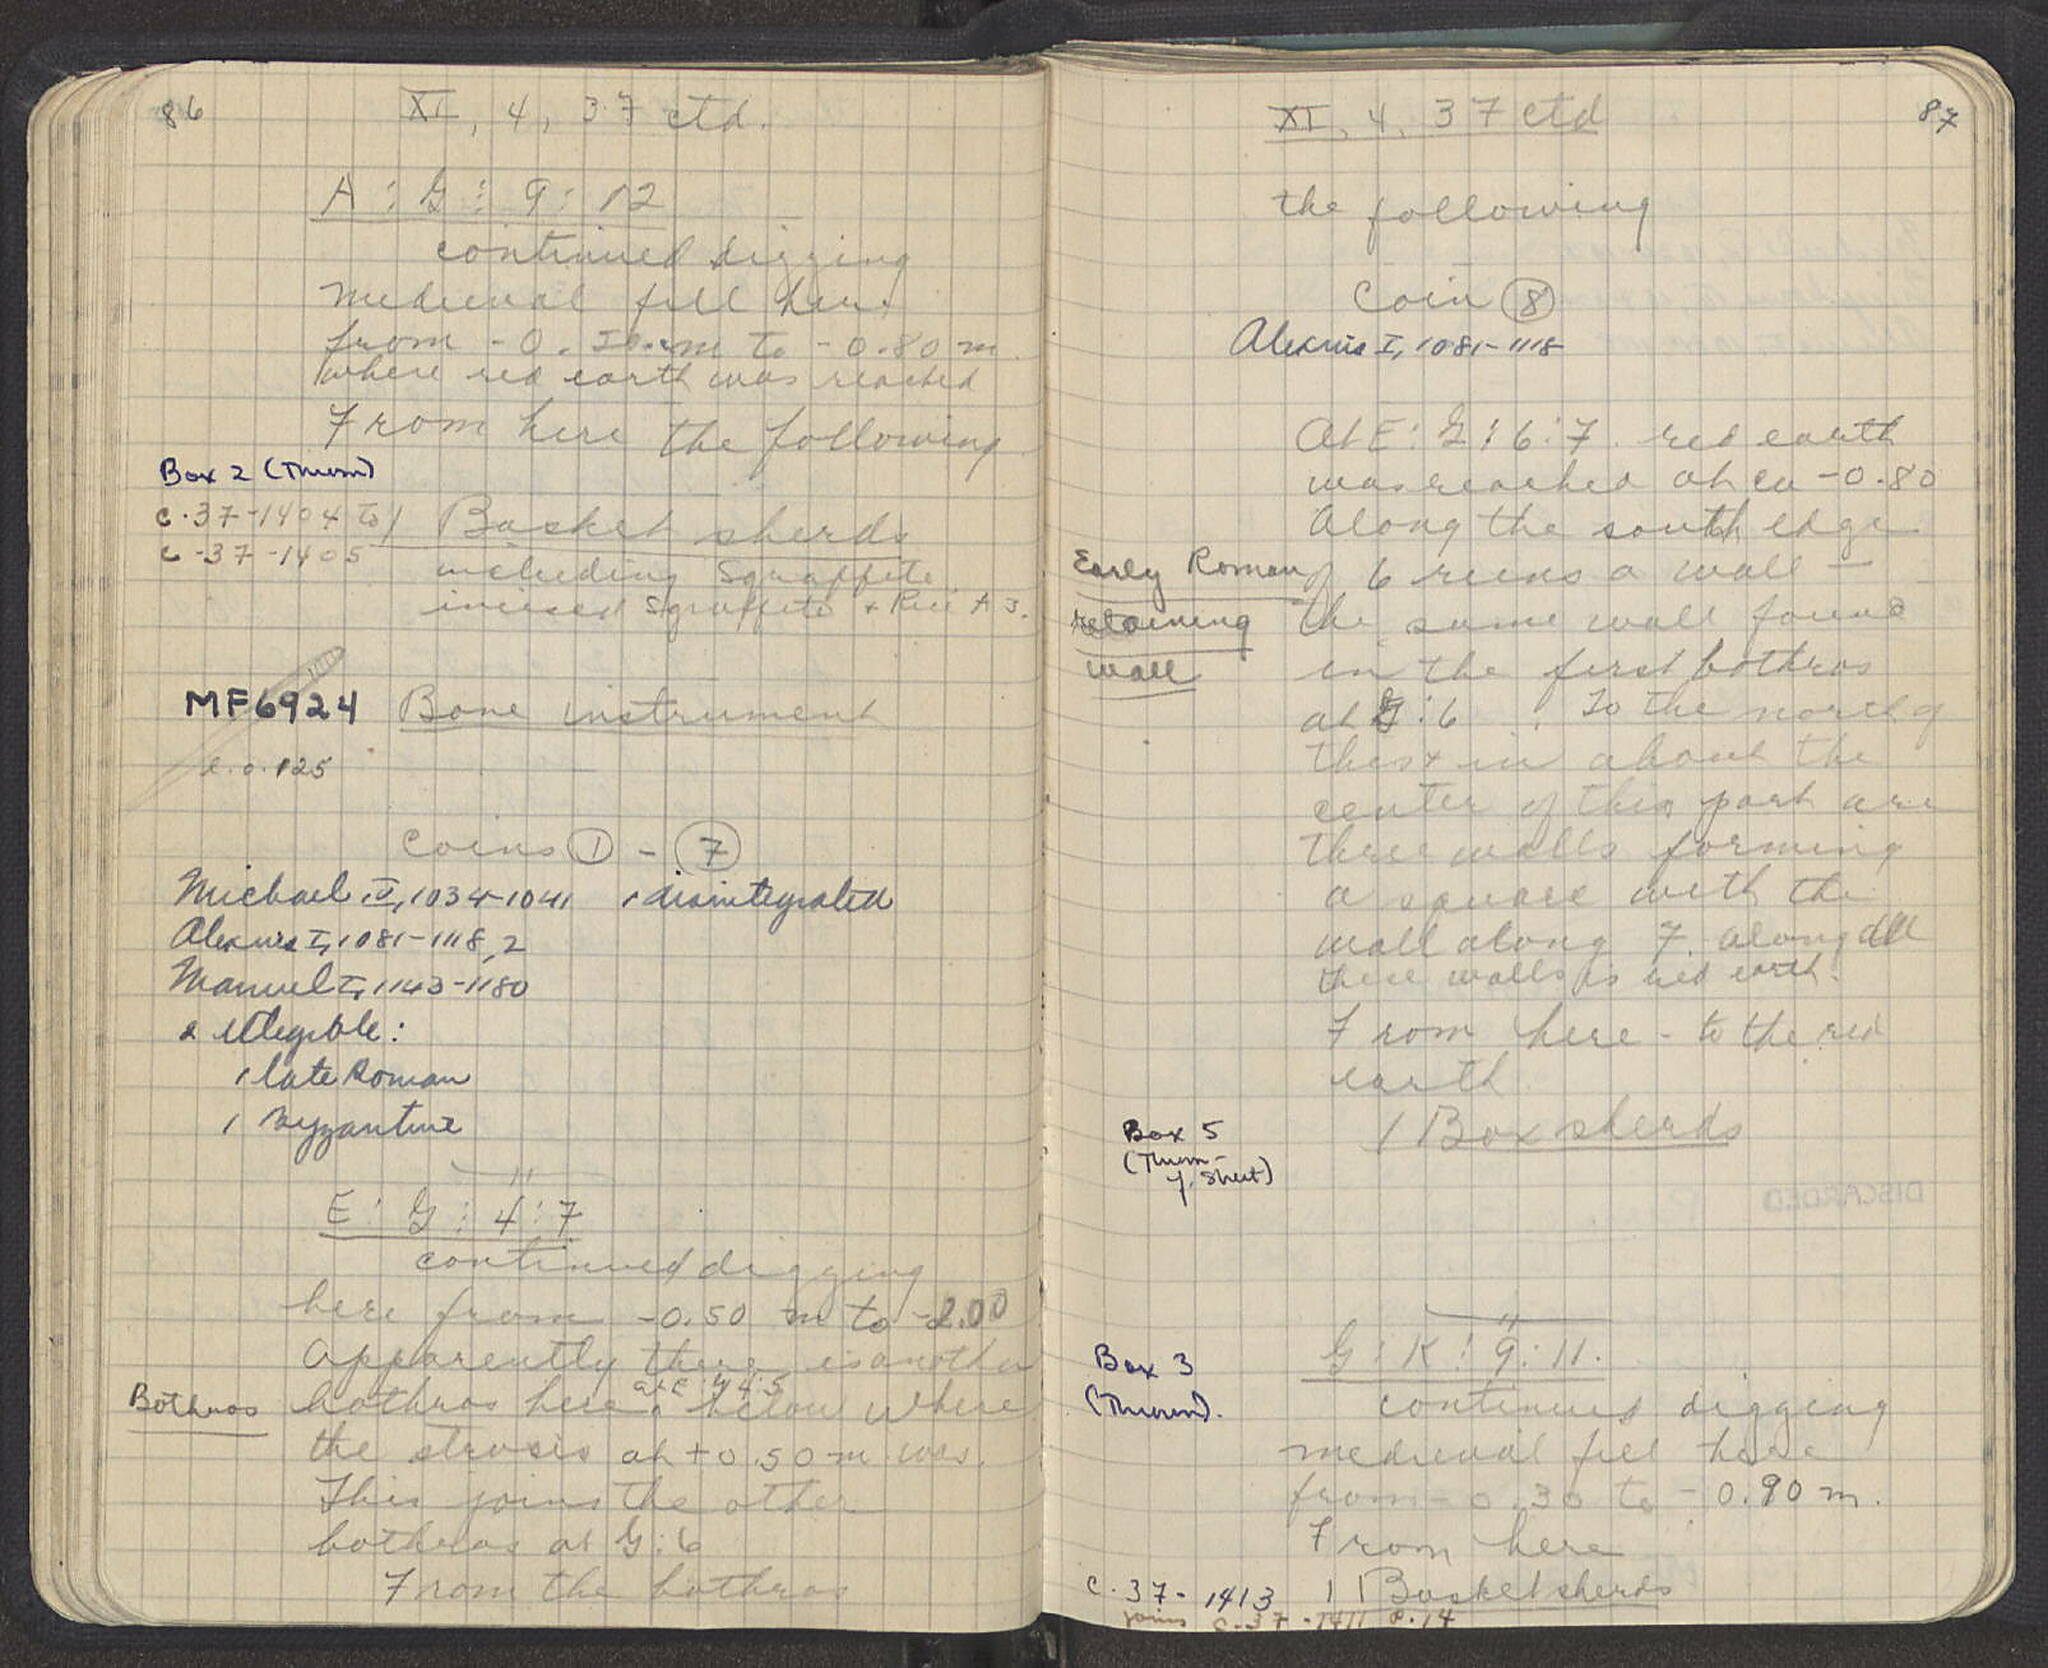 86
XI, 4, 37 ctd.
A : G : 9 : 12
continued digging
medieval fill here
from -0. m to -0.80 m
where red earth was reached
From here the following
Box 2 (Thrum)
C-37-1404 to
C-37-1405
1 Basket sherds
including Sgraffito
incised Sgraffito +
MF6924
Bone instrument
l. 0.125
Coins 1 - 7
Michael IV, 1034-1041 1 disintegrated
Alexius I, 1081-1118, 2
Manuel I, 1143-1180
2 illegible:
1 late Roman
1 Byzantine
"
E : G : 4 : 7
continued digging
here from -0.50 m to -2.00
Apparently there is another
Bothros
bothros here at E:G:4:5 below where
the strosis at +0.50 m was.
This joins the other
bothros at G:6
From the bothros
XI, 4, 37 ctd
87
the following
Coin 8
Alexius I, 1081-1118
At E : G : 6 : 7 red earth
was reached at ca -0.80
Along the south edge
Early Roman
retaining
wall
of 6 runs a wall -
the same wall found
in the first bothros
at G:6. To the north of
this in about the
center of this part are
three walls forming
a square with the
wall along 7. Along all
these walls is red earth.
From here - to the red
earth
1 Box sherds
Box 5
(Thrum-
y. Street)
DISCARDED
"
G : K : 9 : 11.
Box 3
(Thrum).
continued digging
medieval fill here
from -0.30 to -0.90 m.
From here
C-37-1413
1 Basket sherds
joins C-37-1411 P.14